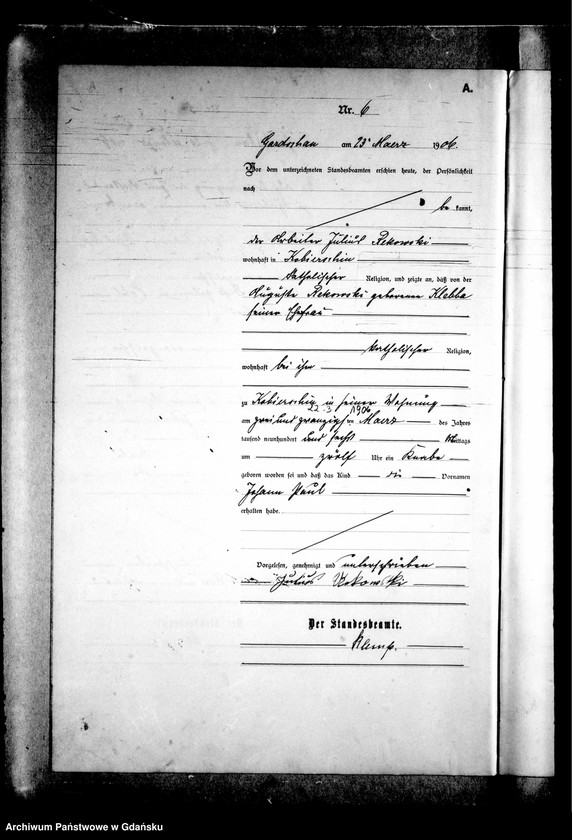 A.
Nr. 6
Gardoschau am 23 Maerz 1906.
Vor dem unterzeichneten Standesbeamten erschien heute, der Persönlichkeit
nach
be kannt,
der Arbeiter Julius Rekowski
wohnhaft in Kobierschin
katholischer Religion, und zeigte an, daß von der
Auguste Rekowski geborenen Klebba
seiner Ehefrau
katholischer Religion,
wohnhaft bei ihm
zu Kobierschin in seiner Wohnung
22-3 1906
am zwei und zwanzigsten Maerz des Jahres
tausend neunhundert und sechs Mittags
um zwölf Uhr ein Knabe
geboren worden sei und daß das Kind die Vornamen
Johann Paul
erhalten habe.
Vorgelesen, genehmigt und unterschrieben
Julius Rekowski
Der Standesbeamte.
Klemp.
Archiwum Państwowe w Gdańsku